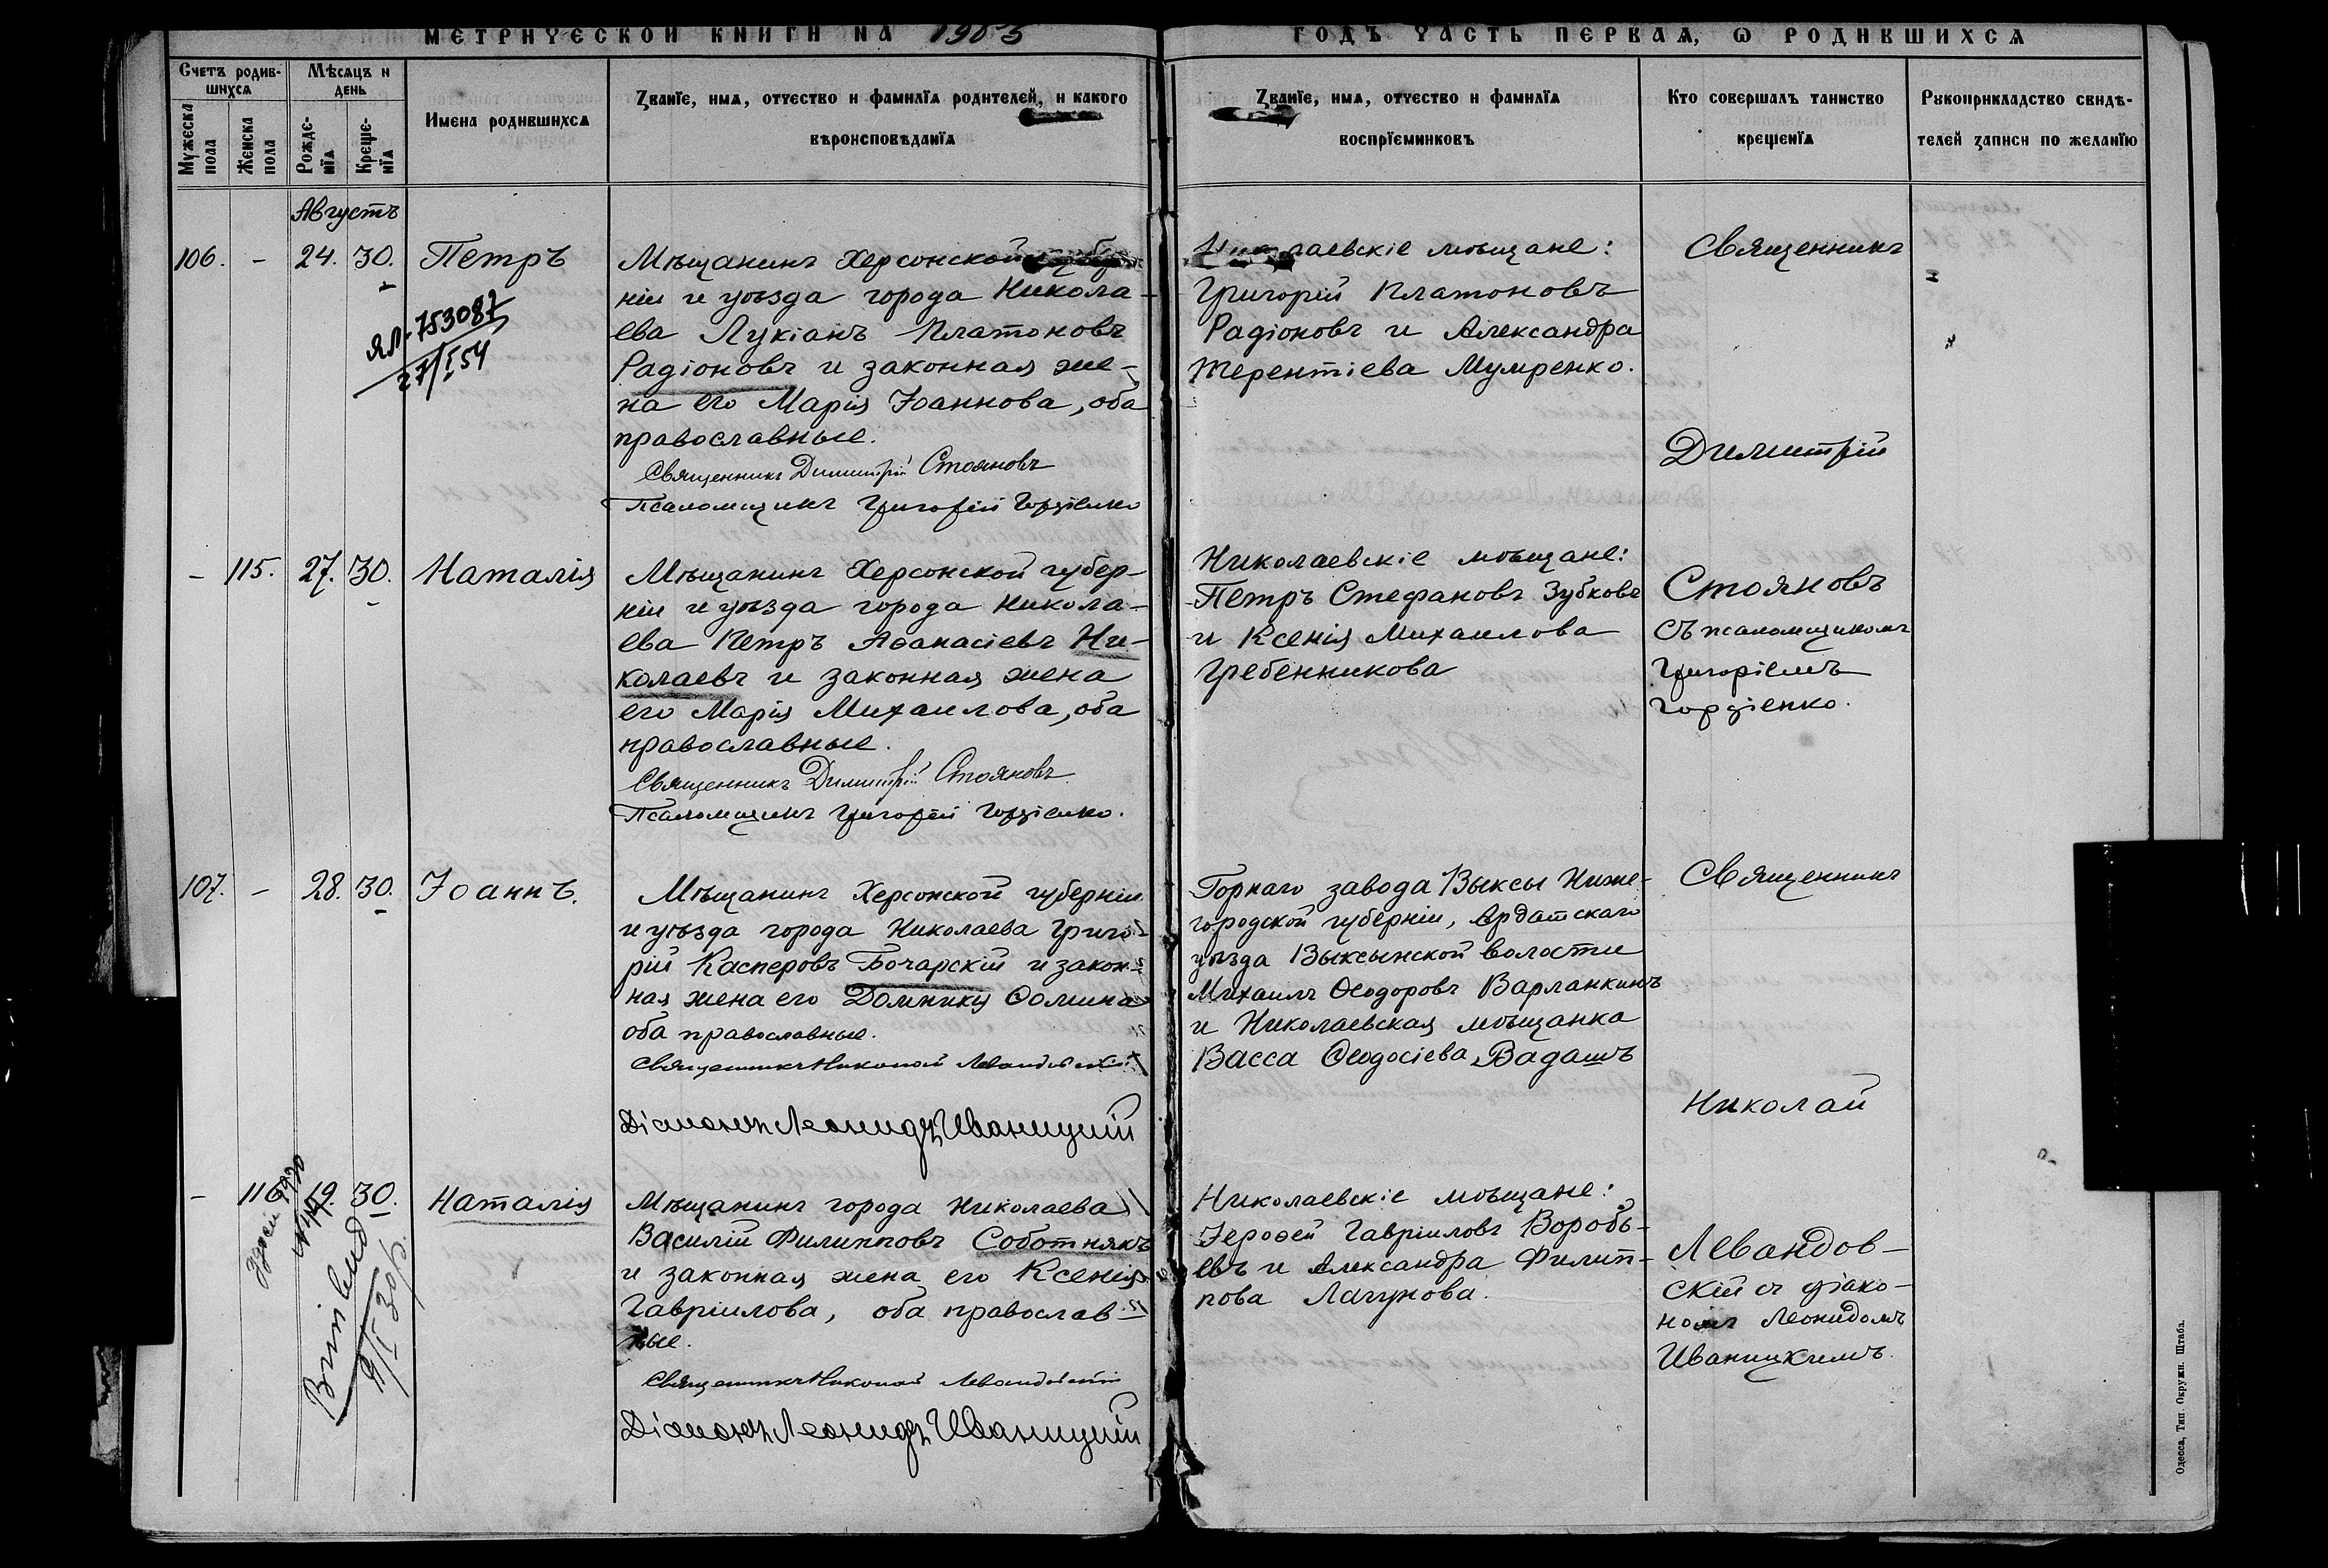 МЕТРИЧЕСКОЙ КНИГИ НА 1903
ГОДЪ ЧАСТЬ ПЕРВАЯ, Ѡ РОДИВШИХСЯ
Счетъ родив-
шихся
Мужеска
пола
Женска
пола
Мѣсяцъ и
день
Рожде-
нїя
Креще-
нїя
Имена родившихся
Званїе, имя, отчество и фамилїя родителей, и какого
вѣроисповѣданїя
Званїе, имя, отчество и фамилїя
воспрїемниковъ
Кто совершалъ таинство
крещенїя
Рукоприкладство свидѣ-
телей записи по желанїю
Августъ
106. - 24. 30. Петръ
ЯЛ-753087
27/I 54
Мѣщанинъ Херсонской губер-
ніи и уѣзда города Никола-
ева Лукіанъ Платоновъ
Радіоновъ и законная же-
на его Марія Іоаннова, оба
православные.
Священникъ Димитрій Стояновъ
Псаломщикъ Григорій Гордіенко
Николаевскіе мѣщане:
Григорій Платоновъ
Радіоновъ и Александра
Терентіева Мумренко.
Священникъ
Димитрій
- 115. 27. 30. Наталія
Мѣщанинъ Херсонской губер-
ніи и уѣзда города Никола-
ева Петръ Аѳанасіевъ Ни-
колаевъ и законная жена
его Марія Михаилова, оба
православные.
Священникъ Димитрій Стояновъ
Псаломщикъ Григорій Гордіенко.
Николаевскіе мѣщане:
Петръ Стефановъ Зубковъ
и Ксенія Михаилова
Гребенникова
Стояновъ
съ псаломщикомъ
Григоріемъ
Гордіенко.
107. - 28. 30. Іоаннъ.
Мѣщанинъ Херсонской губерніи
и уѣзда города Николаева Григо-
рій Касперовъ Бочарскій и закон-
ная жена его Домникія Ѳомина
оба православные.
Священникъ Николай Левандовскій
Діаконъ Леонидъ Иваницкій
Горнаго завода Выксы Ниже-
городской губерніи, Ардатскаго
уѣзда Выксынской волости
Михаилъ Ѳеодоровъ Варланкинъ
и Николаевская мѣщанка
Васса Ѳеодосіева Вадашъ
Священникъ
Николай
- 116. 19. 30. Наталія
9/I 30 г.
Мѣщанинъ города Николаева
Василій Филипповъ Соботнякъ
и законная жена его Ксенія
Гавріилова, оба православ-
ные.
Священникъ Николай Левандовскій
Діаконъ Леонидъ Иваницкій
Николаевскіе мѣщане:
Іероѳей Гавріиловъ Воробь-
евъ и Александра Филип-
пова Лагунова.
Левандов-
скій съ діако-
номъ Леонидомъ
Иваницкимъ.
Одесса, Тип. Окружн. Штаба.